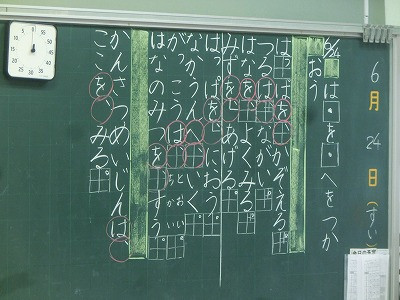 6月24日(すい)
6/24 は を へ をつか
おう
はっぱをかぞえる。
つるはながい。
はをよくみる。
みずをあげる。
はっぱをにおう。
へいく。
がっこうは、とおい
ちかい
はなのみつをすう。
かんさつめいじんは、
ここを、みる。